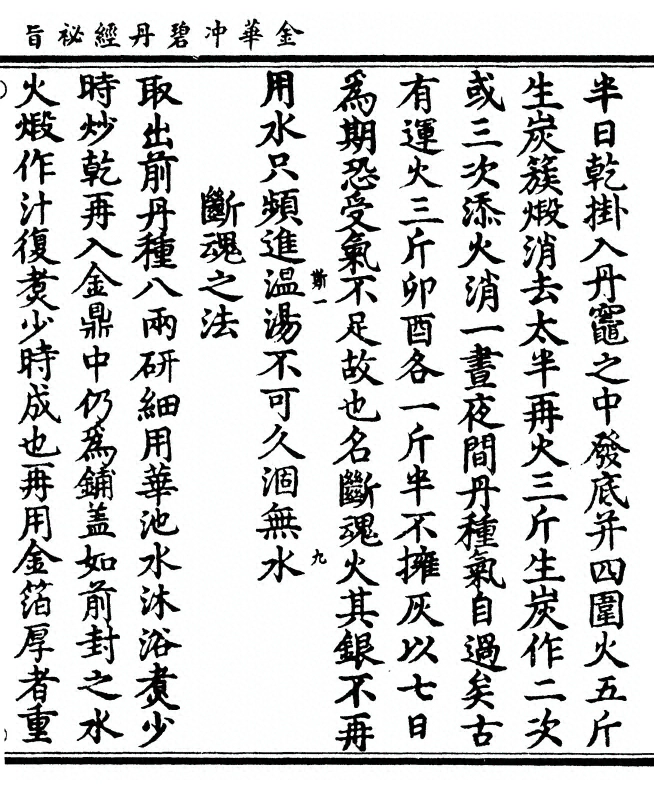 金華沖碧丹經秘旨
半日乾掛入丹竈之中發底并四圍火五斤
生炭簇煅消去太半再火三斤生炭作二次
或三次添火消一晝夜間丹種氣自過矣古
有運火三斤卯酉各一斤半不擁灰以七日
為期恐受氣不足故也名斷魂火其銀不再
斯一
九
用水只頻進温湯不可久涸無水
斷魂之法
取出前丹種八兩研細用華池水沐浴煑少
時炒乾再入金鼎中仍為鋪盖如前封之水
火煅作汁復煑少時成也再用金箔厚者重